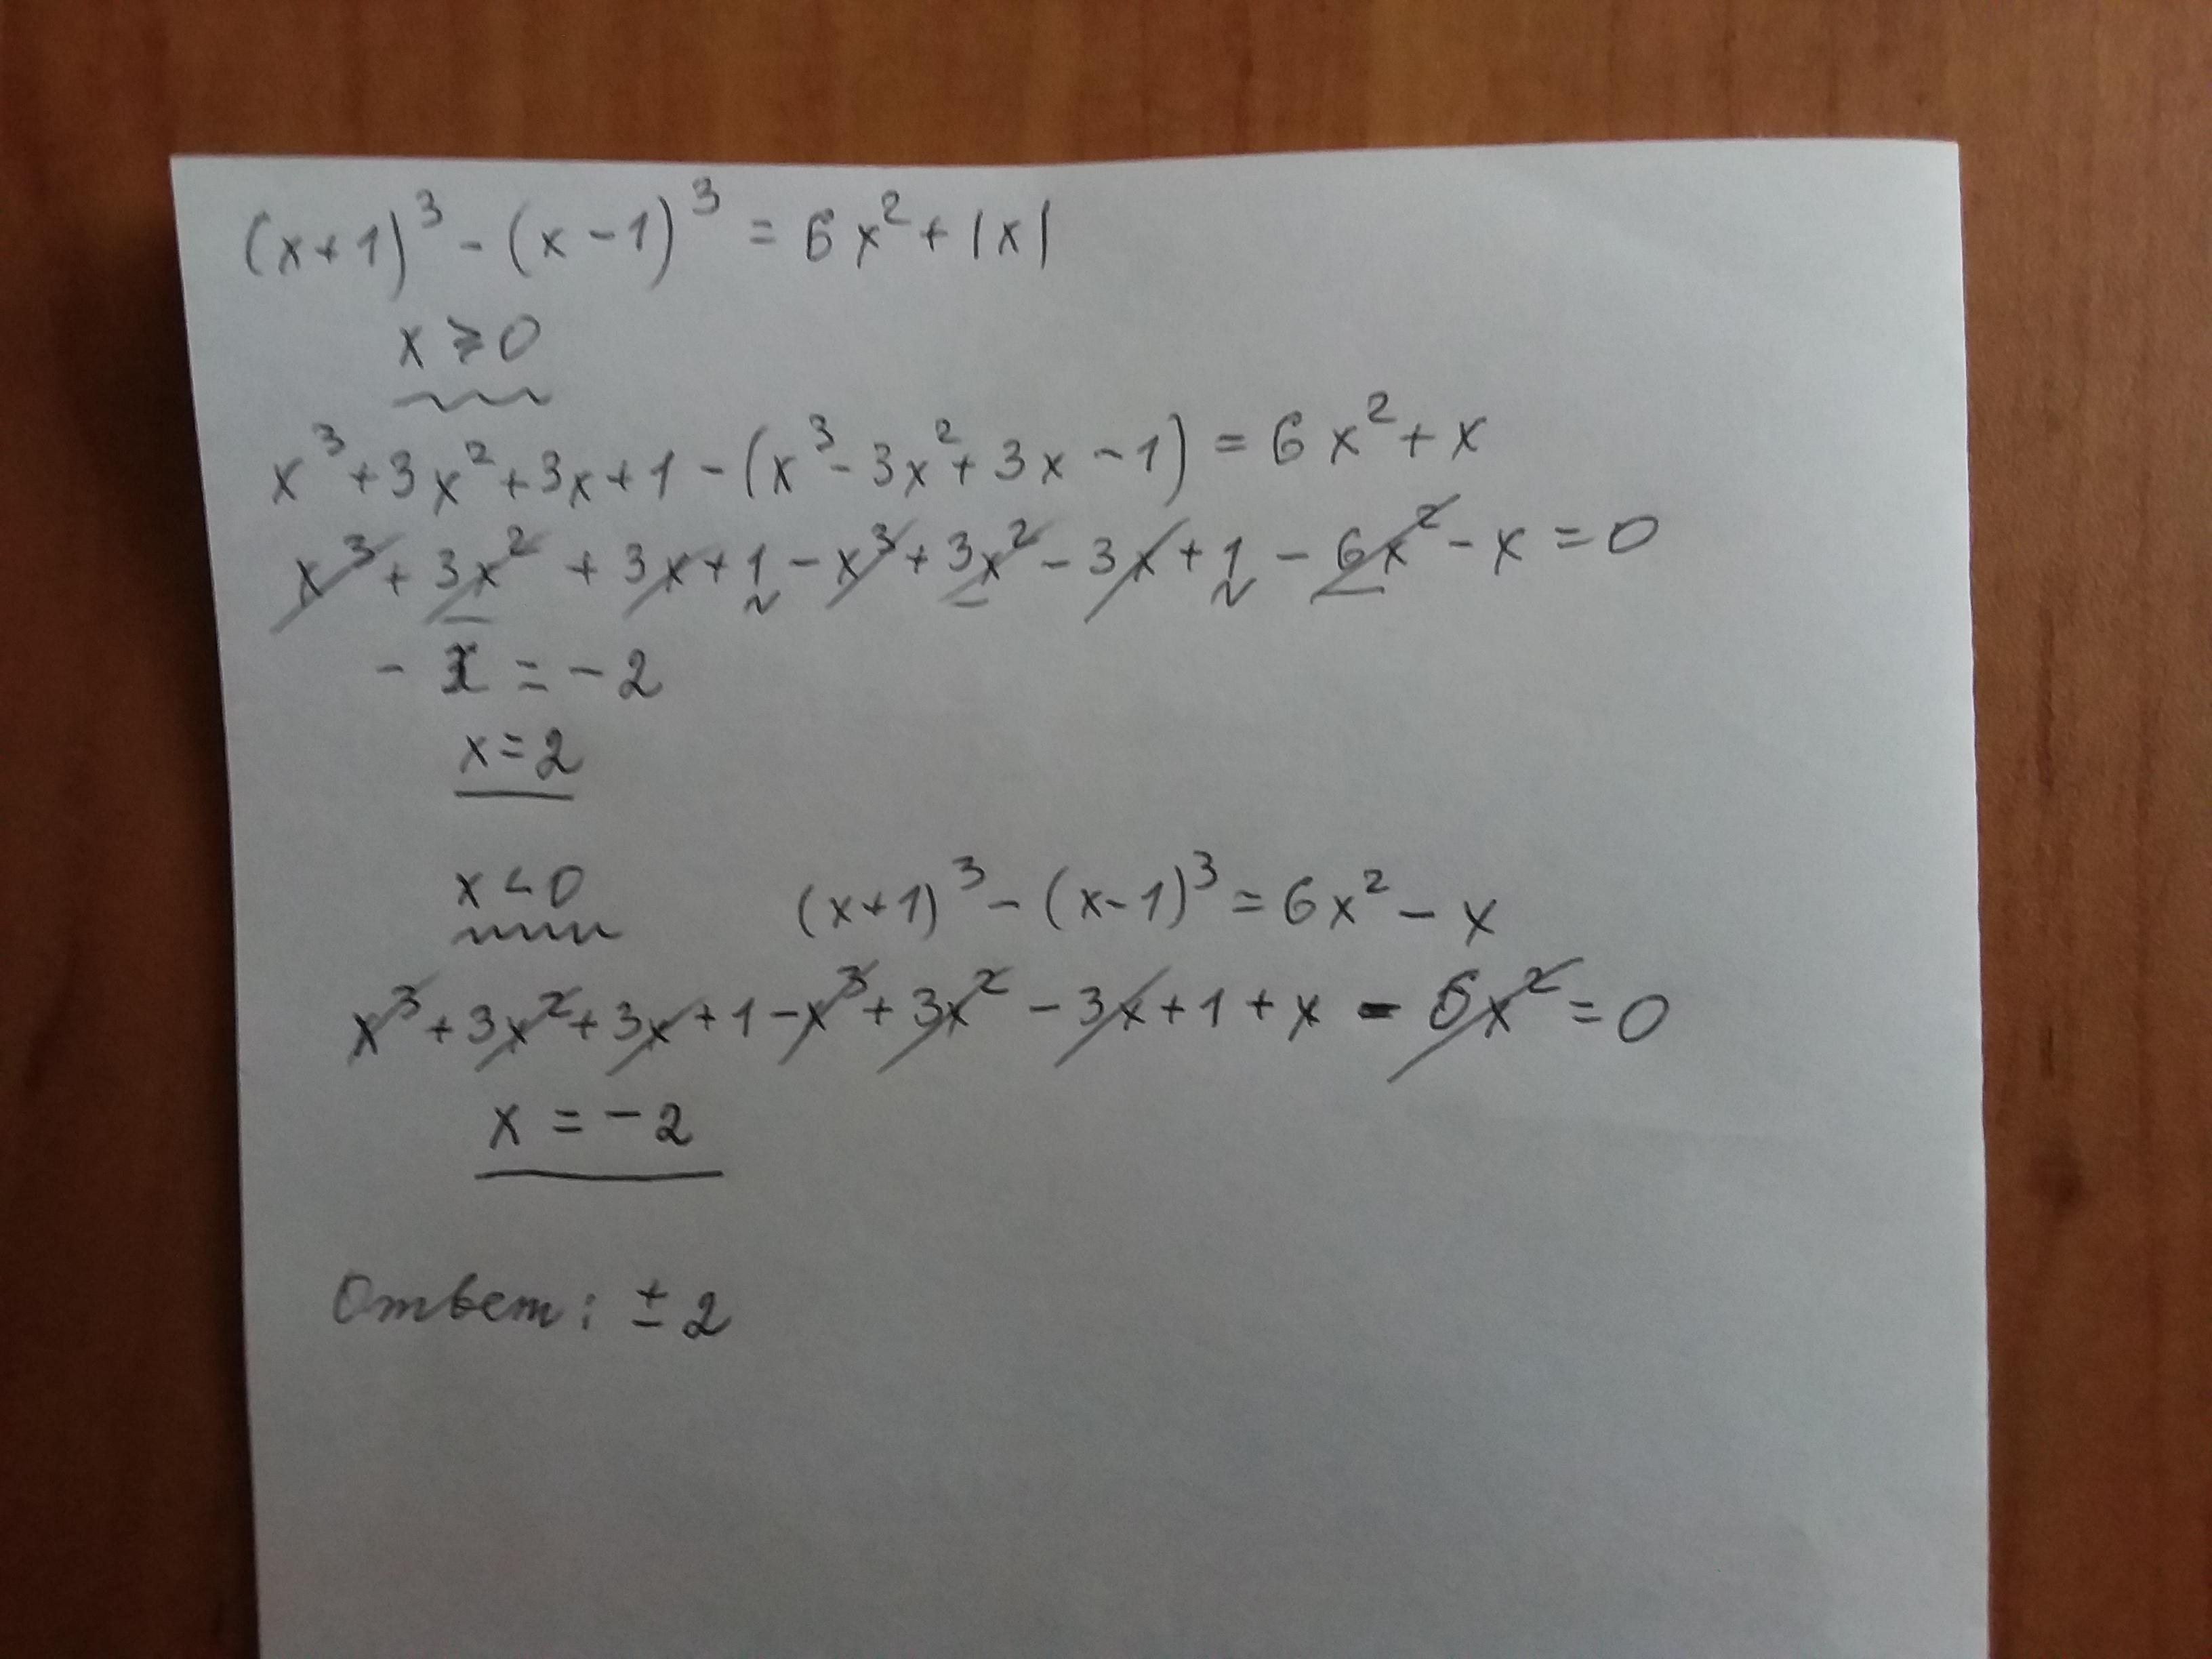 (x+1)³-(x-1)³=6x²+|x|
x⩾0
x³+3x²+3x+1-(x³-3x²+3x-1)=6x²+x
x³+3x²+3x+1-x³+3x²-3x+1-6x²-x=0
-x=-2
x=2
x<0 (x+1)³-(x-1)³=6x²-x
x³+3x²+3x+1-x³+3x²-3x+1+x-6x²=0
x=-2
Ответ: ±2